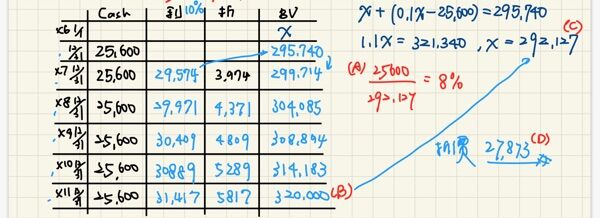 Cash 利10% 折 BV
x6 1/1 x
12/31 25,600 295.740
x7 12/31 25,600 29,574 3,974 299.714
x8 12/31 25,600 29,971 4,371 304,085
x9 12/31 25,600 30,409 4809 308,894
x10 12/31 25,600 30889 5289 314,183
x11 12/31 25,600 31,417 5817 320,000 (B)
x + (0.1x-25,600) = 295,740
1.1x = 321.340, x = 292,127 (C)
(A) 25600/292,127 = 8%
27,873 (D)